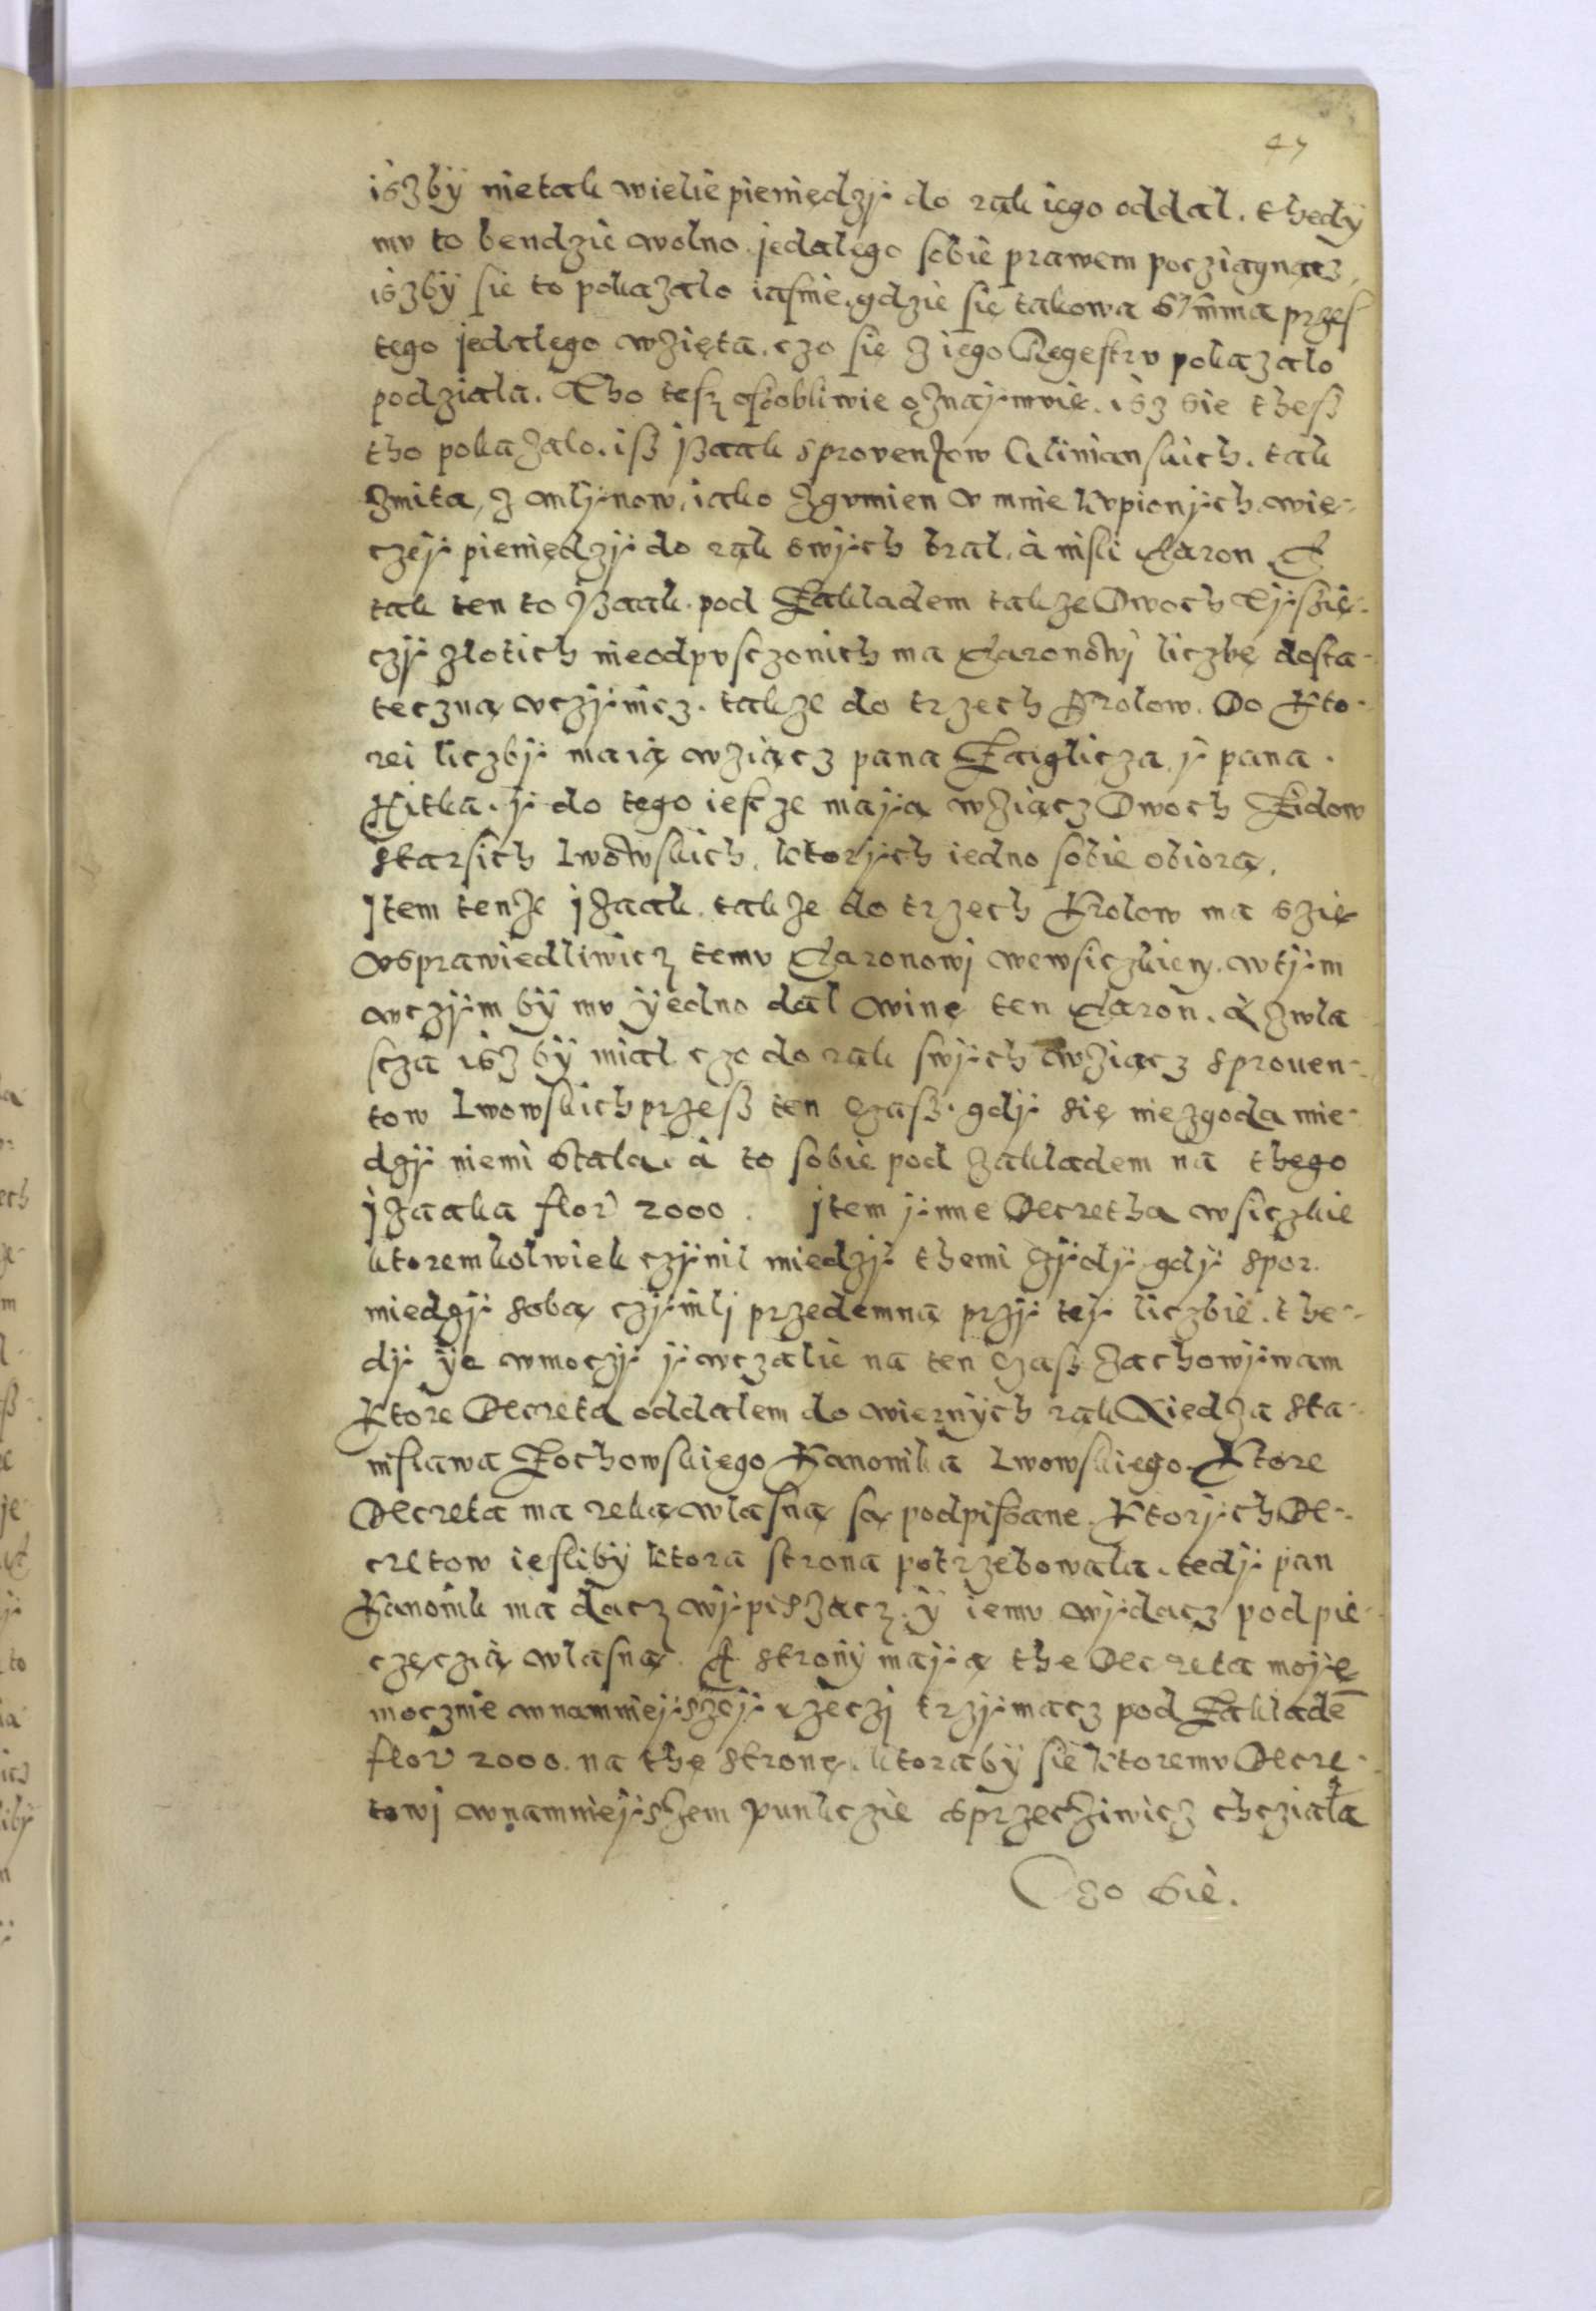 47
iszbÿ nietak wielie pieniędzÿ do rąk iego oddal. thedÿ
mv to bendzie wolno jedalego sobie prawem pocziągnącz,
iszbÿ sie to pokazalo iasnie, gdzie się takowa Sum̄ma przes
tego jedalego wzięta, czo się z iego Regestrv pokazalo
podziala. Tho tesz osobliwie oznaÿmvię. isz sie thesz
tho pokazalo. isz jzaak sprovenzow Glinianskich. tak
zmita, z mlÿnow, iako zgvmien v mnie kvpionÿch wie-
czeÿ pieniędzÿ do rąk swÿch bral, à nisli Aaron. A
tak ten to jzaak pod Zakladem takze Dwoch Tÿsię-
czÿ złotich nieodpvsczonich ma Aaronowj liczbę dosta-
teczną vczÿnicz. takze do trzech Krolow. Do Kto-
rei liczbÿ maią wziącz pana Zaiglicza ÿ pana
Kitka. ÿ do tego iescze maÿą wziącz Dwoch Zidow
starsich Lwowskich, ktorÿch iedno sobie obiorą.
Jtem tenze jzaak. takze do trzech Krolow ma szię
vsprawiedliwicz temv Aaronowj wewsiczkiem. wtÿm
wczÿm bÿ mv ÿedno dal winę ten Aaron. A zwla
scza iszbÿ mial czo do rąk swÿch wziącz sprouen-
tow Lwowskich przesz ten czasz. gdÿ się niezgoda mie-
dzÿ niemi stala. à to sobie pod zakladem na thego
jzaaka flor 2000. jtem ÿnne Decretha wsiczkie
ktoremkolwiek czÿnil miedzÿ themi zÿdÿ gdÿ spor.
miedzÿ sobą czÿnilj przedemną przÿ teÿ liczbie. the-
dÿ ÿe wmoczÿ ÿ wczalie na ten czasz zachowÿwam
Ktore Decreta oddalem do wiernÿch rąk Xiedza Sta-
nislawa Zochowskiego Kanonika Lwowskiego. Ktore
Decreta mą ręką wlasną są podpisane. Ktorÿch De-
cretow iesliby ktora strona potrzebowala. tedÿ pan
Kanonik ma dacz wÿpiszacz. ÿ iemv wÿdacz pod pie-
częczią wlasną. A stronÿ maÿą the Decreta moÿe
mocznie wnamnieÿszeÿ rzeczj trzÿmacz pod Zakladē
flor 2000. na thę stronę. ktorabÿ sie ktoremv Decre-
towj wnamnieÿszem punkczie sprzecziwicz chcziała
Czo Sie.